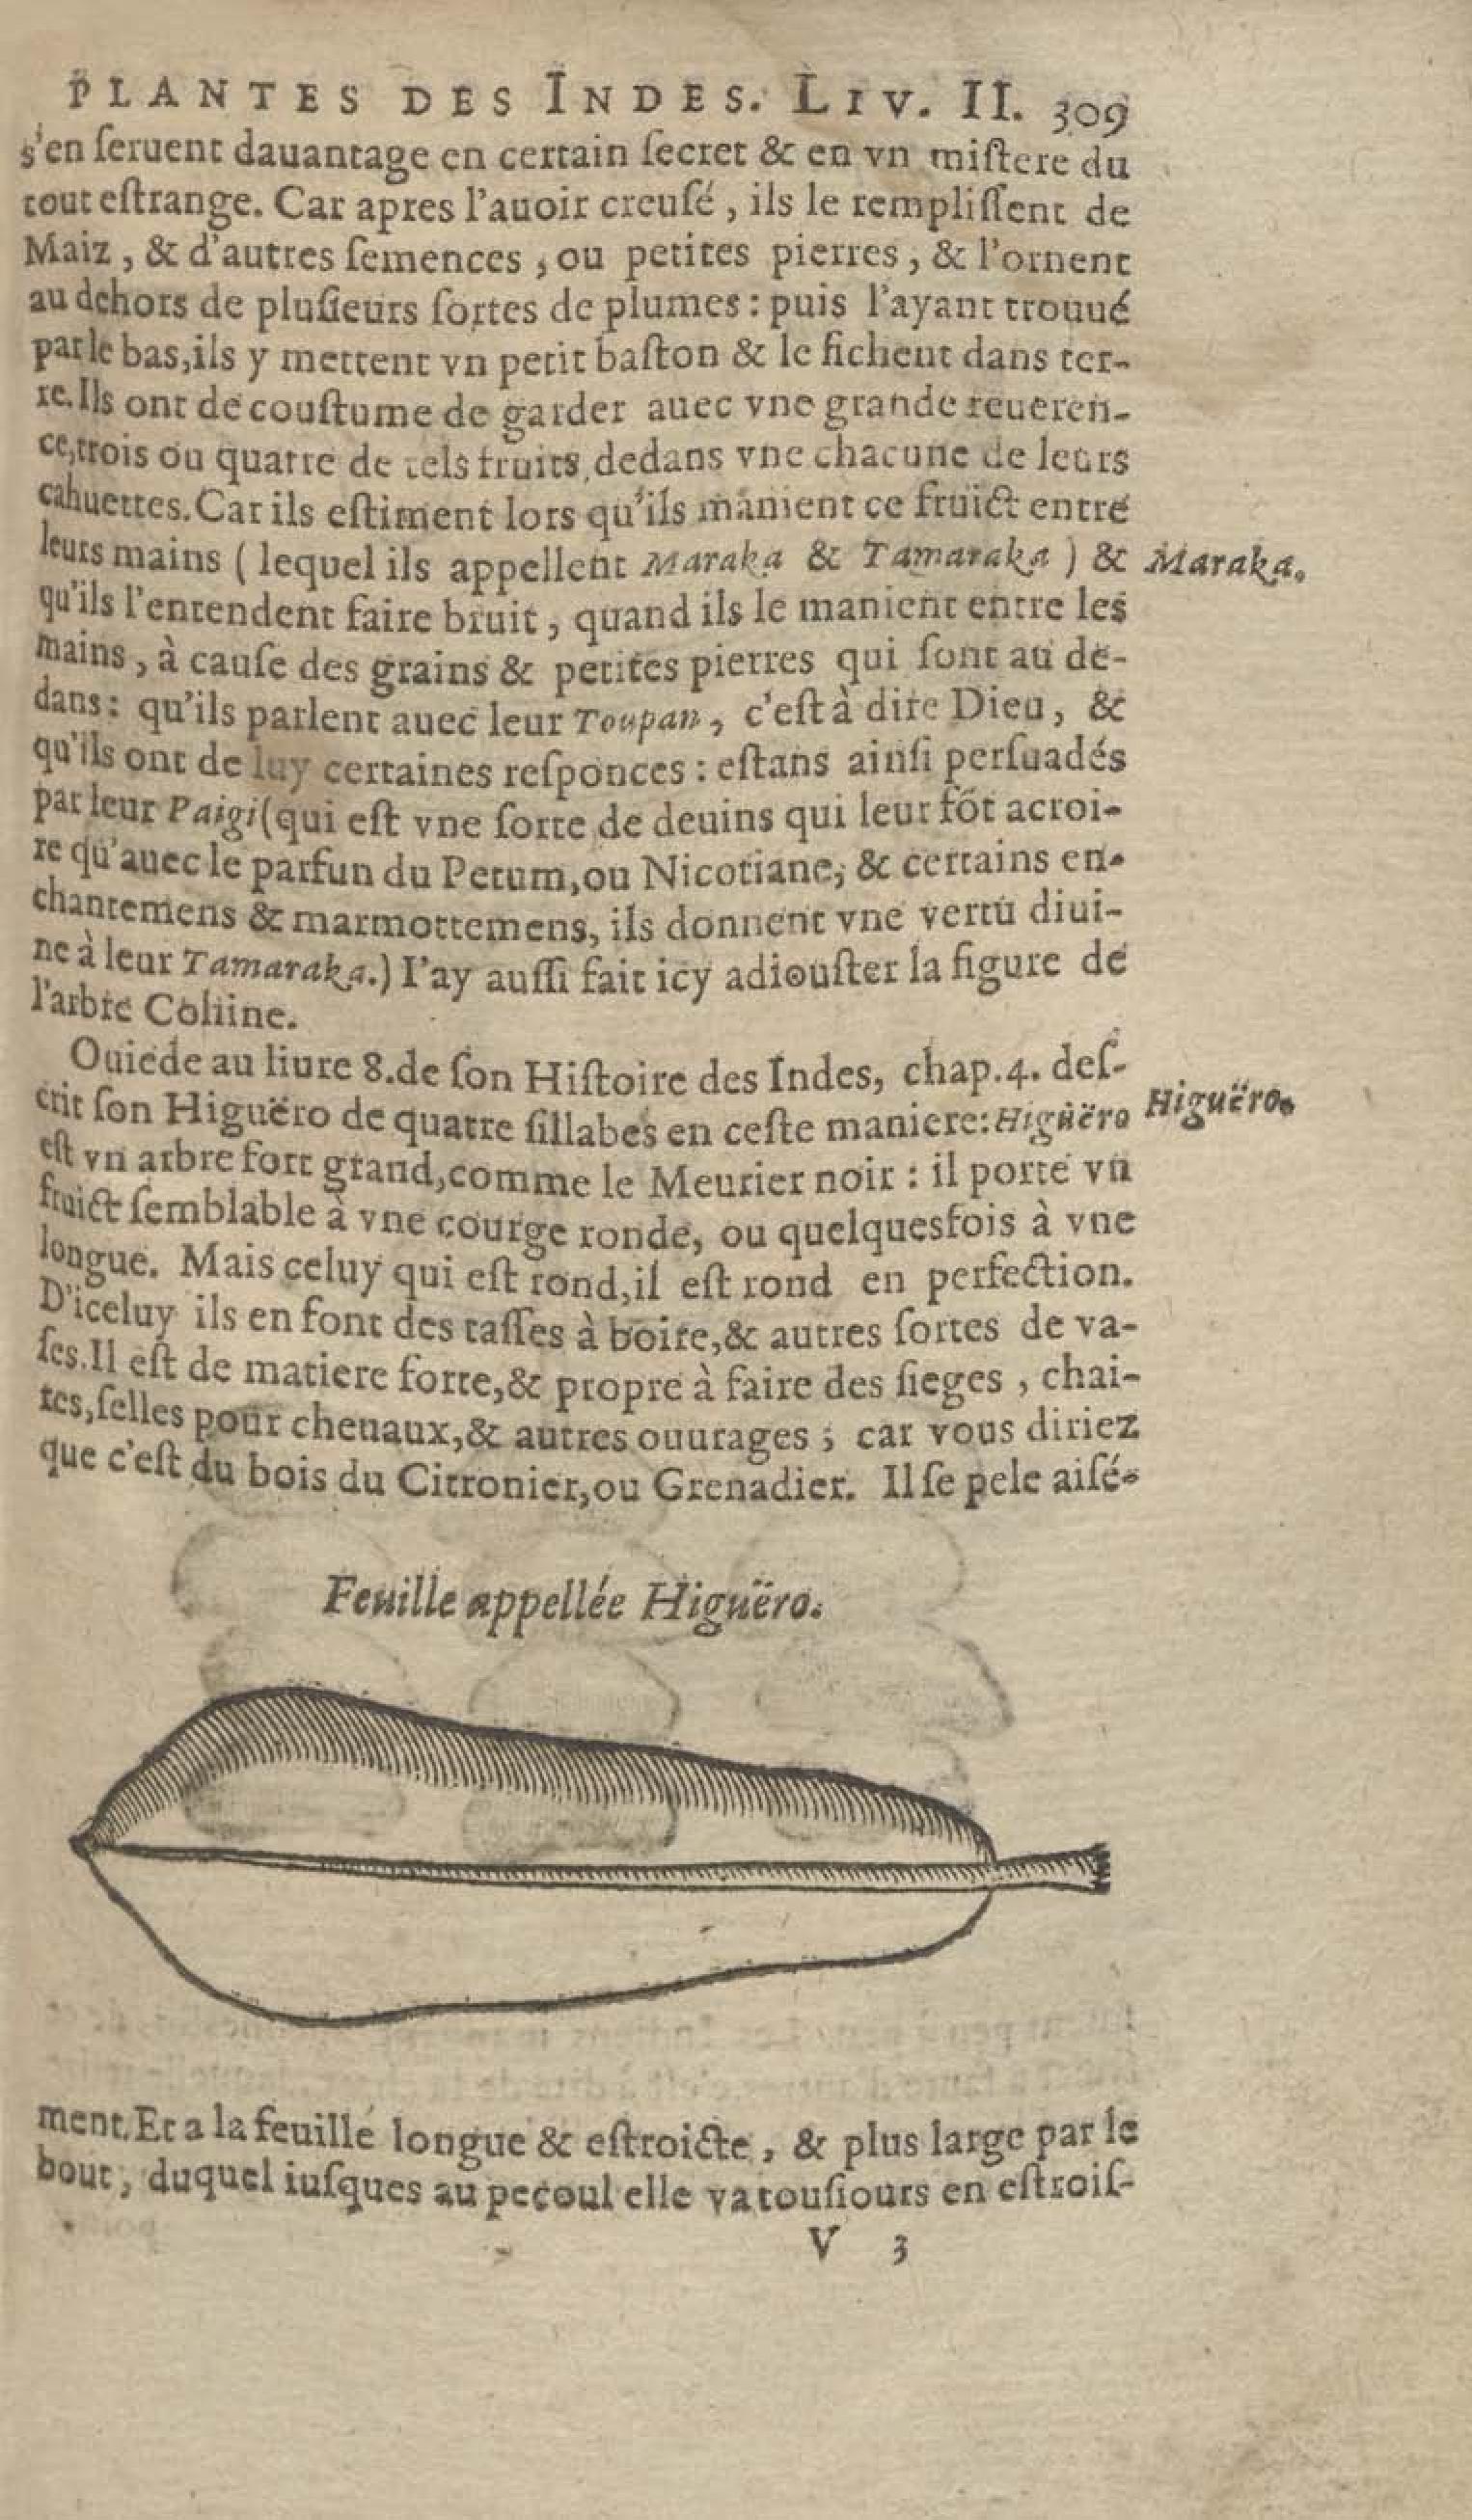 PLANTES DES INDES. LIV. II. 309
s'en ſeruent dauantage en certain ſecret & en vn miſtere du
tout eſtrange. Car apres l'auoir creuſé, ils le rempliſſent de
Maiz, & d'autres ſemences, ou petites pierres, & l'ornent
au dehors de pluſieurs ſortes de plumes: puis l'ayant trouué
par le bas, ils y mettent vn petit baſton & le fichent dans ter-
re. Ils ont de couſtume de garder auec vne grande reueren-
ce, trois ou quatre de tels fruits, dedans vne chacune de leurs
cahuettes. Car ils eſtiment lors qu'ils manient ce fruict entre
leurs mains (lequel ils appellent Maraka & Tamaraka) &
Maraka.
qu'ils l'entendent faire bruit, quand ils le manient entre les
mains, à cauſe des grains & petites pierres qui ſont au de-
dans: qu'ils parlent auec leur Toupan, c'eſt à dire Dieu, &
qu'ils ont de luy certaines reſponces: eſtans ainſi perſuadés
par leur Paigi (qui eſt vne ſorte de deuins qui leur fôt acroi-
re qu'auec le parfun du Petum, ou Nicotiane, & certains en-
chantemens & marmottemens, ils donnent vne vertu diui-
ne à leur Tamaraka.) I'ay auſſi fait icy adiouſter la figure de
l'arbre Cohine.
Ouiede au liure 8. de ſon Hiſtoire des Indes, chap. 4. deſ-
crit ſon Higuëro de quatre ſillabes en ceſte maniere: Higüëro
Higuëro.
eſt vn arbre fort grand, comme le Meurier noir: il porte vn
fruict ſemblable à vne courge ronde, ou quelquesfois à vne
longue. Mais celuy qui eſt rond, il eſt rond en perfection.
D'iceluy ils en font des taſſes à boire, & autres ſortes de va-
ſes. Il eſt de matiere forte, & propre à faire des ſieges, chai-
res, ſelles pour cheuaux, & autres ouurages; car vous diriez
que c'eſt du bois du Citronier, ou Grenadier. Il ſe pele aiſé-
Feuille appellée Higuëro.
ment. Et a la feuille longue & eſtroicte, & plus large par le
bout, duquel iuſques au peçoul elle va touſiours en eſtroiſ-
V 3